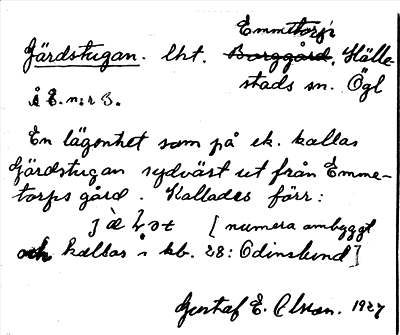 Emmetorp
Gärdstugan. lht. Borggård, Hälle-
stads sn. Ögl
Å E. n:r 3.
En lägenhet som på ek. kallas
Gärdstugan sydväst ut från Emme-
torps gård. Kallades förr:
[numera ombyggt
och kallas i kb. 28: Odinslund]
Gustaf E. Olsson. 1927